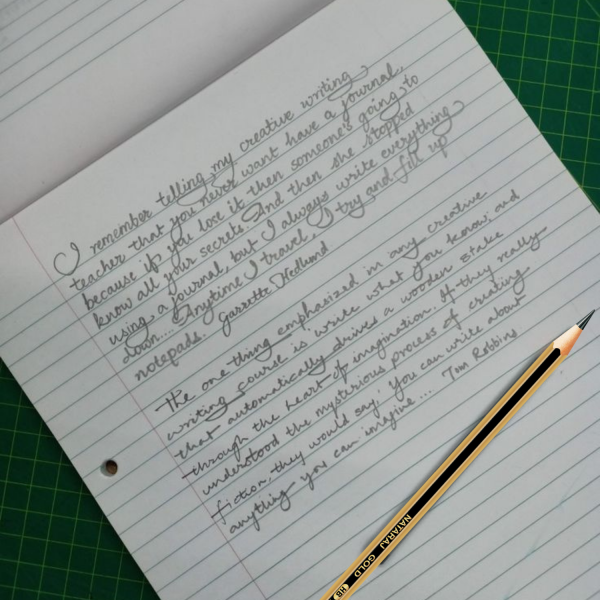 I remember telling my creative writing
teacher that you never want have a journal,
because if you lose it then someone's going to
know all your secrets. And then she stopped
using a journal, but I always write everything
down.... Anytime I travel I try and fill up
notepads. Garrette Hedlund
The one thing emphasized in any creative
writing course is 'write what you know', and
that automatically drives a wooden stake
through the heart of imagination. If they really
understood the mysterious process of creating
fiction, they would say, 'You can write about
anything you can imagine... Tom Robbins
NATARAJ GOLD HB